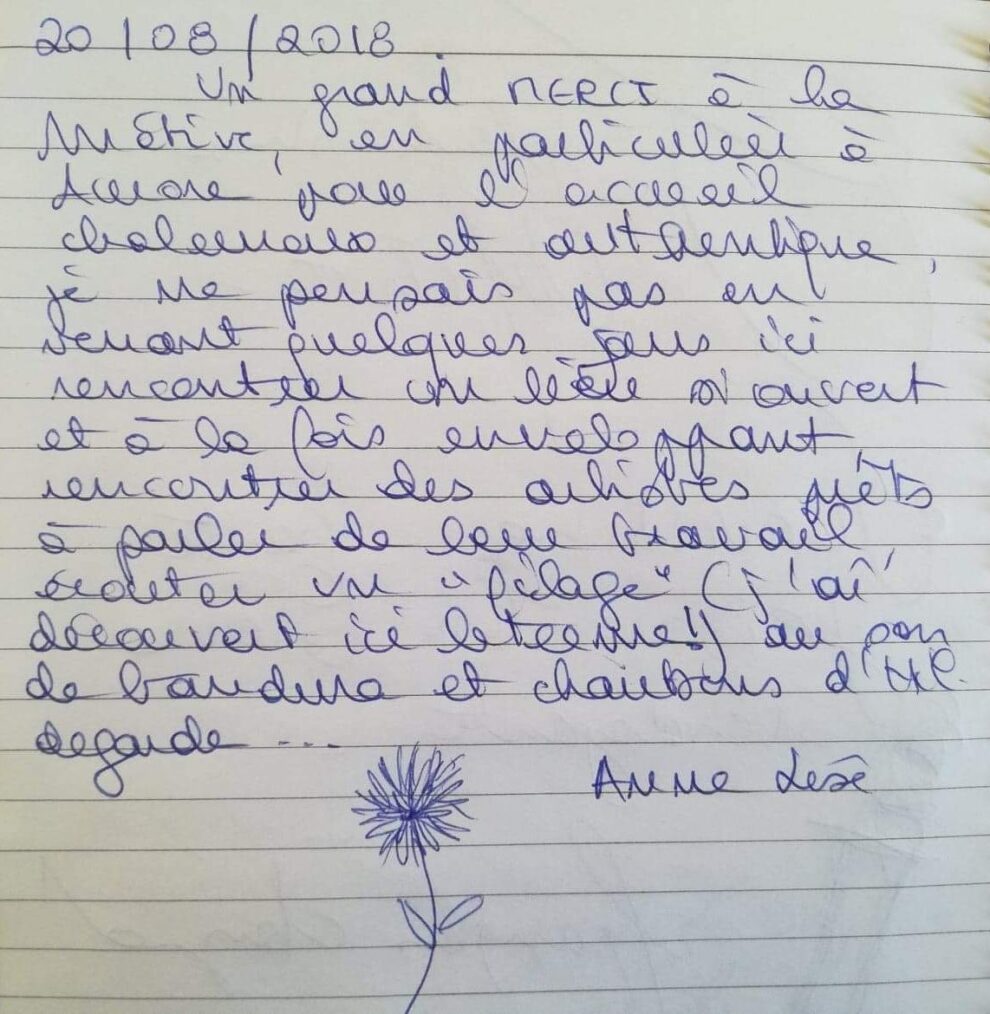 20/08/2018.
Un grand MERCI à La
Métive, en particulier à
Aurore pour l'accueil
chaleureux et authentique,
je ne pensais pas en
venant quelques jours ici
rencontrer un lieu si ouvert
et à la fois enveloppant,
rencontrer des artistes prêts
à parler de leur travail,
écouter un "filage" (j'ai
découvert ici le terme!) au son
de bandura et chansons d'
degarde ...
Anne